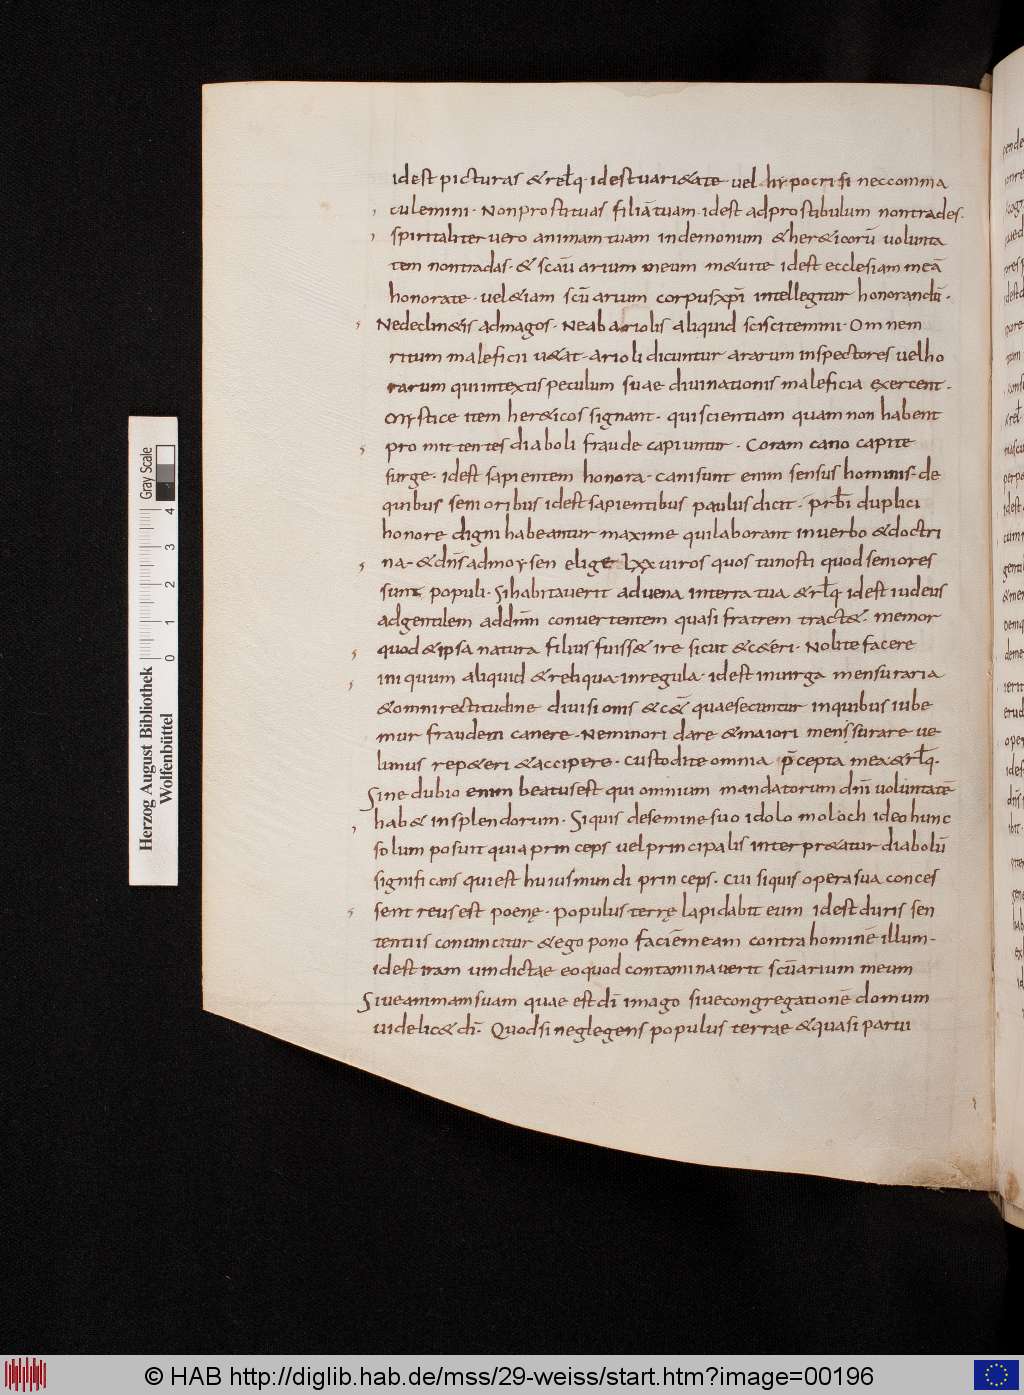 idest picturas & relq· idest uari&ate vel hypocrisi neccomma
culemini· Non prostituas filiā tuam· idest ad prostibulum non trades·
spiritaliter vero animam tuam in demonum & her&icorū volunta
tem non tradas· & scāuarium meum m&uite idest ecclesiam meā
honorate· vel &iam scūarium corpus xpī intellegitur honorandū·
Ne declin&is ad magos· Ne ab ariolis aliquid sciscitemini· Omnem
ritum maleficii u&at· arioli dicuntur ararum inspectores vel ho
rarum qui in extis peculum suae divinationis maleficia exercent·
Mystice item her&icos signant· qui scientiam quam non habent
promittentes diaboli fraude capiuntur· Coram cano capite
surge· idest sapientem honora· cani sunt enim sensus hominis· de
quibus senioribus idest sapientibus paulus dicit· prbī duplici
honore digni habeantur maxime qui laborant in verbo & doctri
na· & dns ad moysen elige lxx viros quos tu nosti quod seniores
sunt populi· Si habitaverit advena in terra tua & rlq· idest iudeus
ad gentilem ad dnm convertentem quasi fratrem tract&· memor
quod & ipsa natura filius fuiss& ire sicut & c&eri· Nolite facere
iniquum aliquid & reliqua· in regula· idest in virga mensuraria
& omni rectitudine divisionis & c&· quae secuntur in quibus iube
mur fraudem canere· Ne minori dare & maiori menssurare ve
limus rep&eri & accipere· Custodite omnia p̄cepta mea & rlq·
Sine dubio enim beatus est qui omnium mandatorum dnī voluntatē
hab& in splendorum· Si quis de semine suo idolo moloch ideo hunc
solum posuit quia princeps vel principalis interpr&atur diabolū
significans qui est huius mundi princeps· cui si quis opera sua conces
sent reus est poenę· populus terrę lapidabit eum idest duris sen
tentiis coniuncitur & ego pono faciem meam contra hominē illum·
idest iram vindictae eo quod contaminaverit scūarium meum
Sive animam suam quae est dī imago sive congregationē domum
videlic& dī· Quod si neglegens populus terrae & quasi parvi
Herzog August Bibliothek
Wolfenbüttel
Gray Scale
0 1 2 3 4
© HAB http://diglib.hab.de/mss/29-weiss/start.htm?image=00196